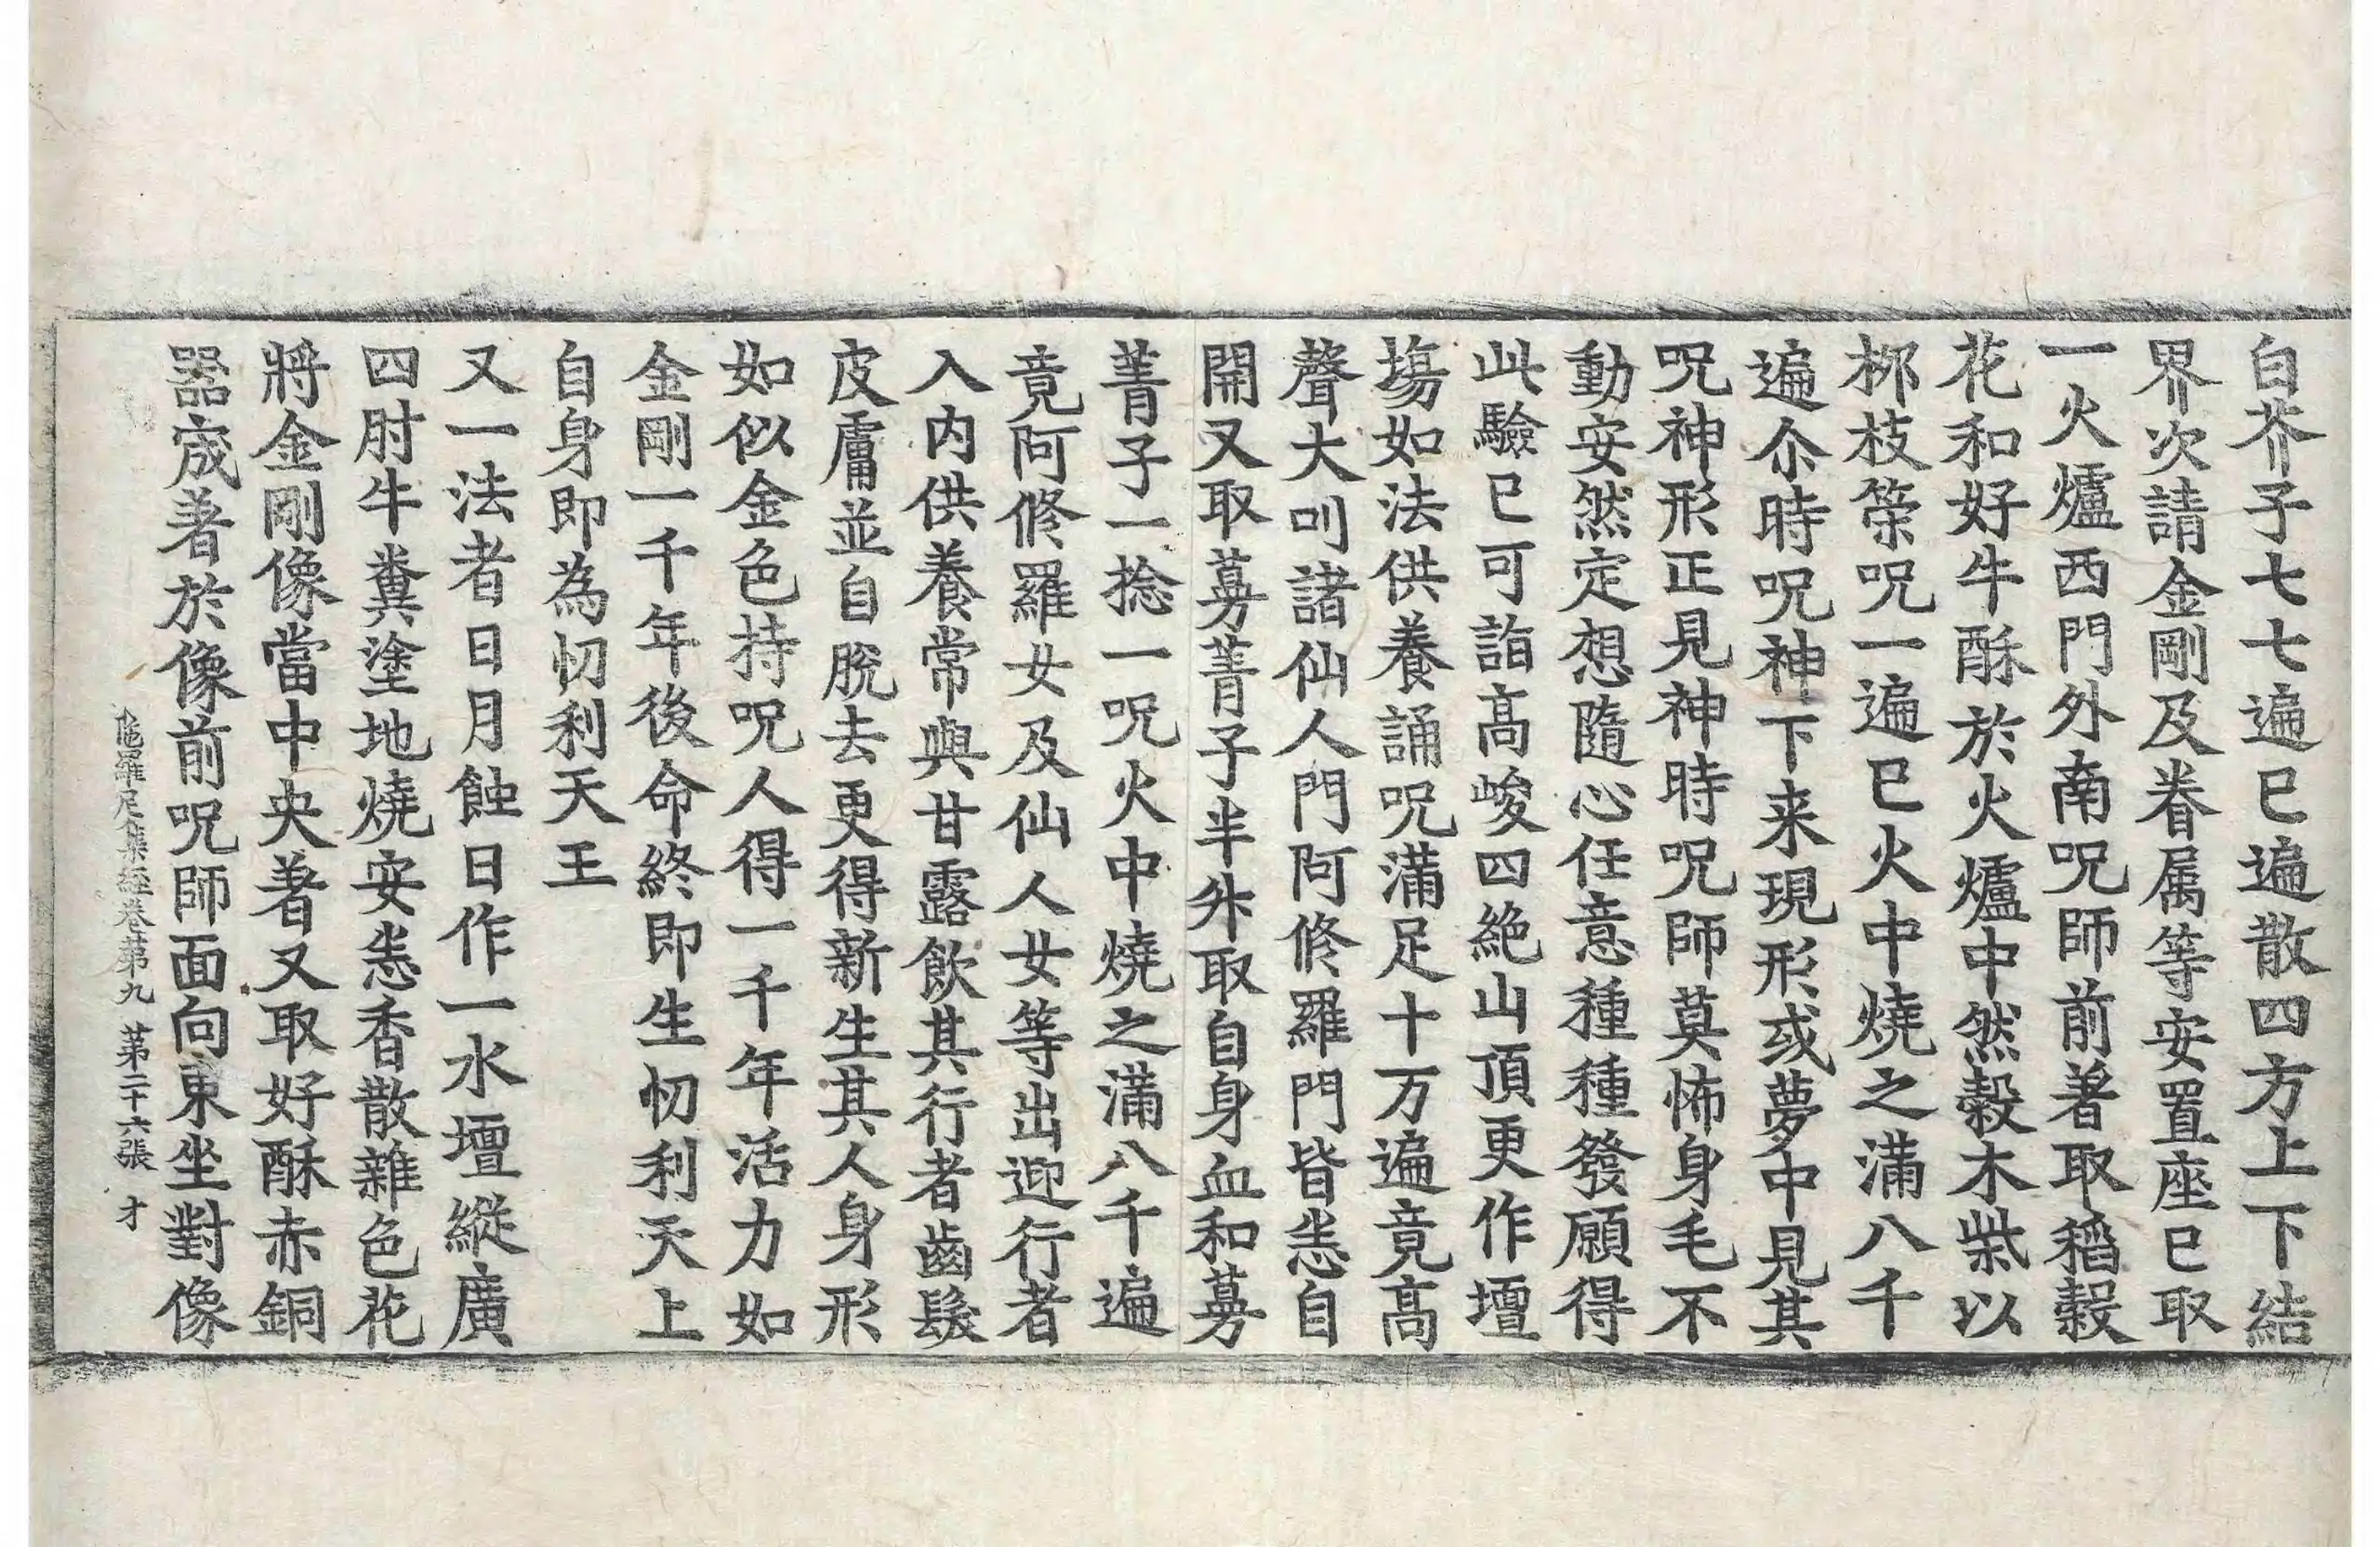 白芥子七七遍已遍散四方上下結
界次請金剛及眷属等安置座已取
一火爐西門外南呪師前著取稻穀
花和好牛酥於火爐中然穀木柴以
桏枝榮呪一遍已火中燒之滿八千
遍尒時呪神下来現形或夢中見其
呪神形正見神時呪師莫怖身毛不
動安然定想隨心任意種種發願得
此驗已可詣高峻四絶山頂更作壇
場如法供養誦呪滿足十万遍竟高
聲大叫諸仙人門阿修羅門皆悉自
開又取蔓菁子半升取自身血和蔓
菁子一捻一呪火中燒之滿八千遍
竟阿修羅女及仙人女等出迎行者
入内供養常與甘露飲其行者齒髮
皮膚並自脫去更得新生其人身形
如似金色持呪人得一千年活力如
金剛一千年後命終即生忉利天上
自身即為忉利天王
又一法者日月蝕日作一水壇縱廣
四肘牛糞塗地燒安悉香散雜色花
將金剛像當中央著又取好酥赤銅
器宬著於像前呪師面向東坐對像
陁羅尼集經卷苐九　苐二十六張　才